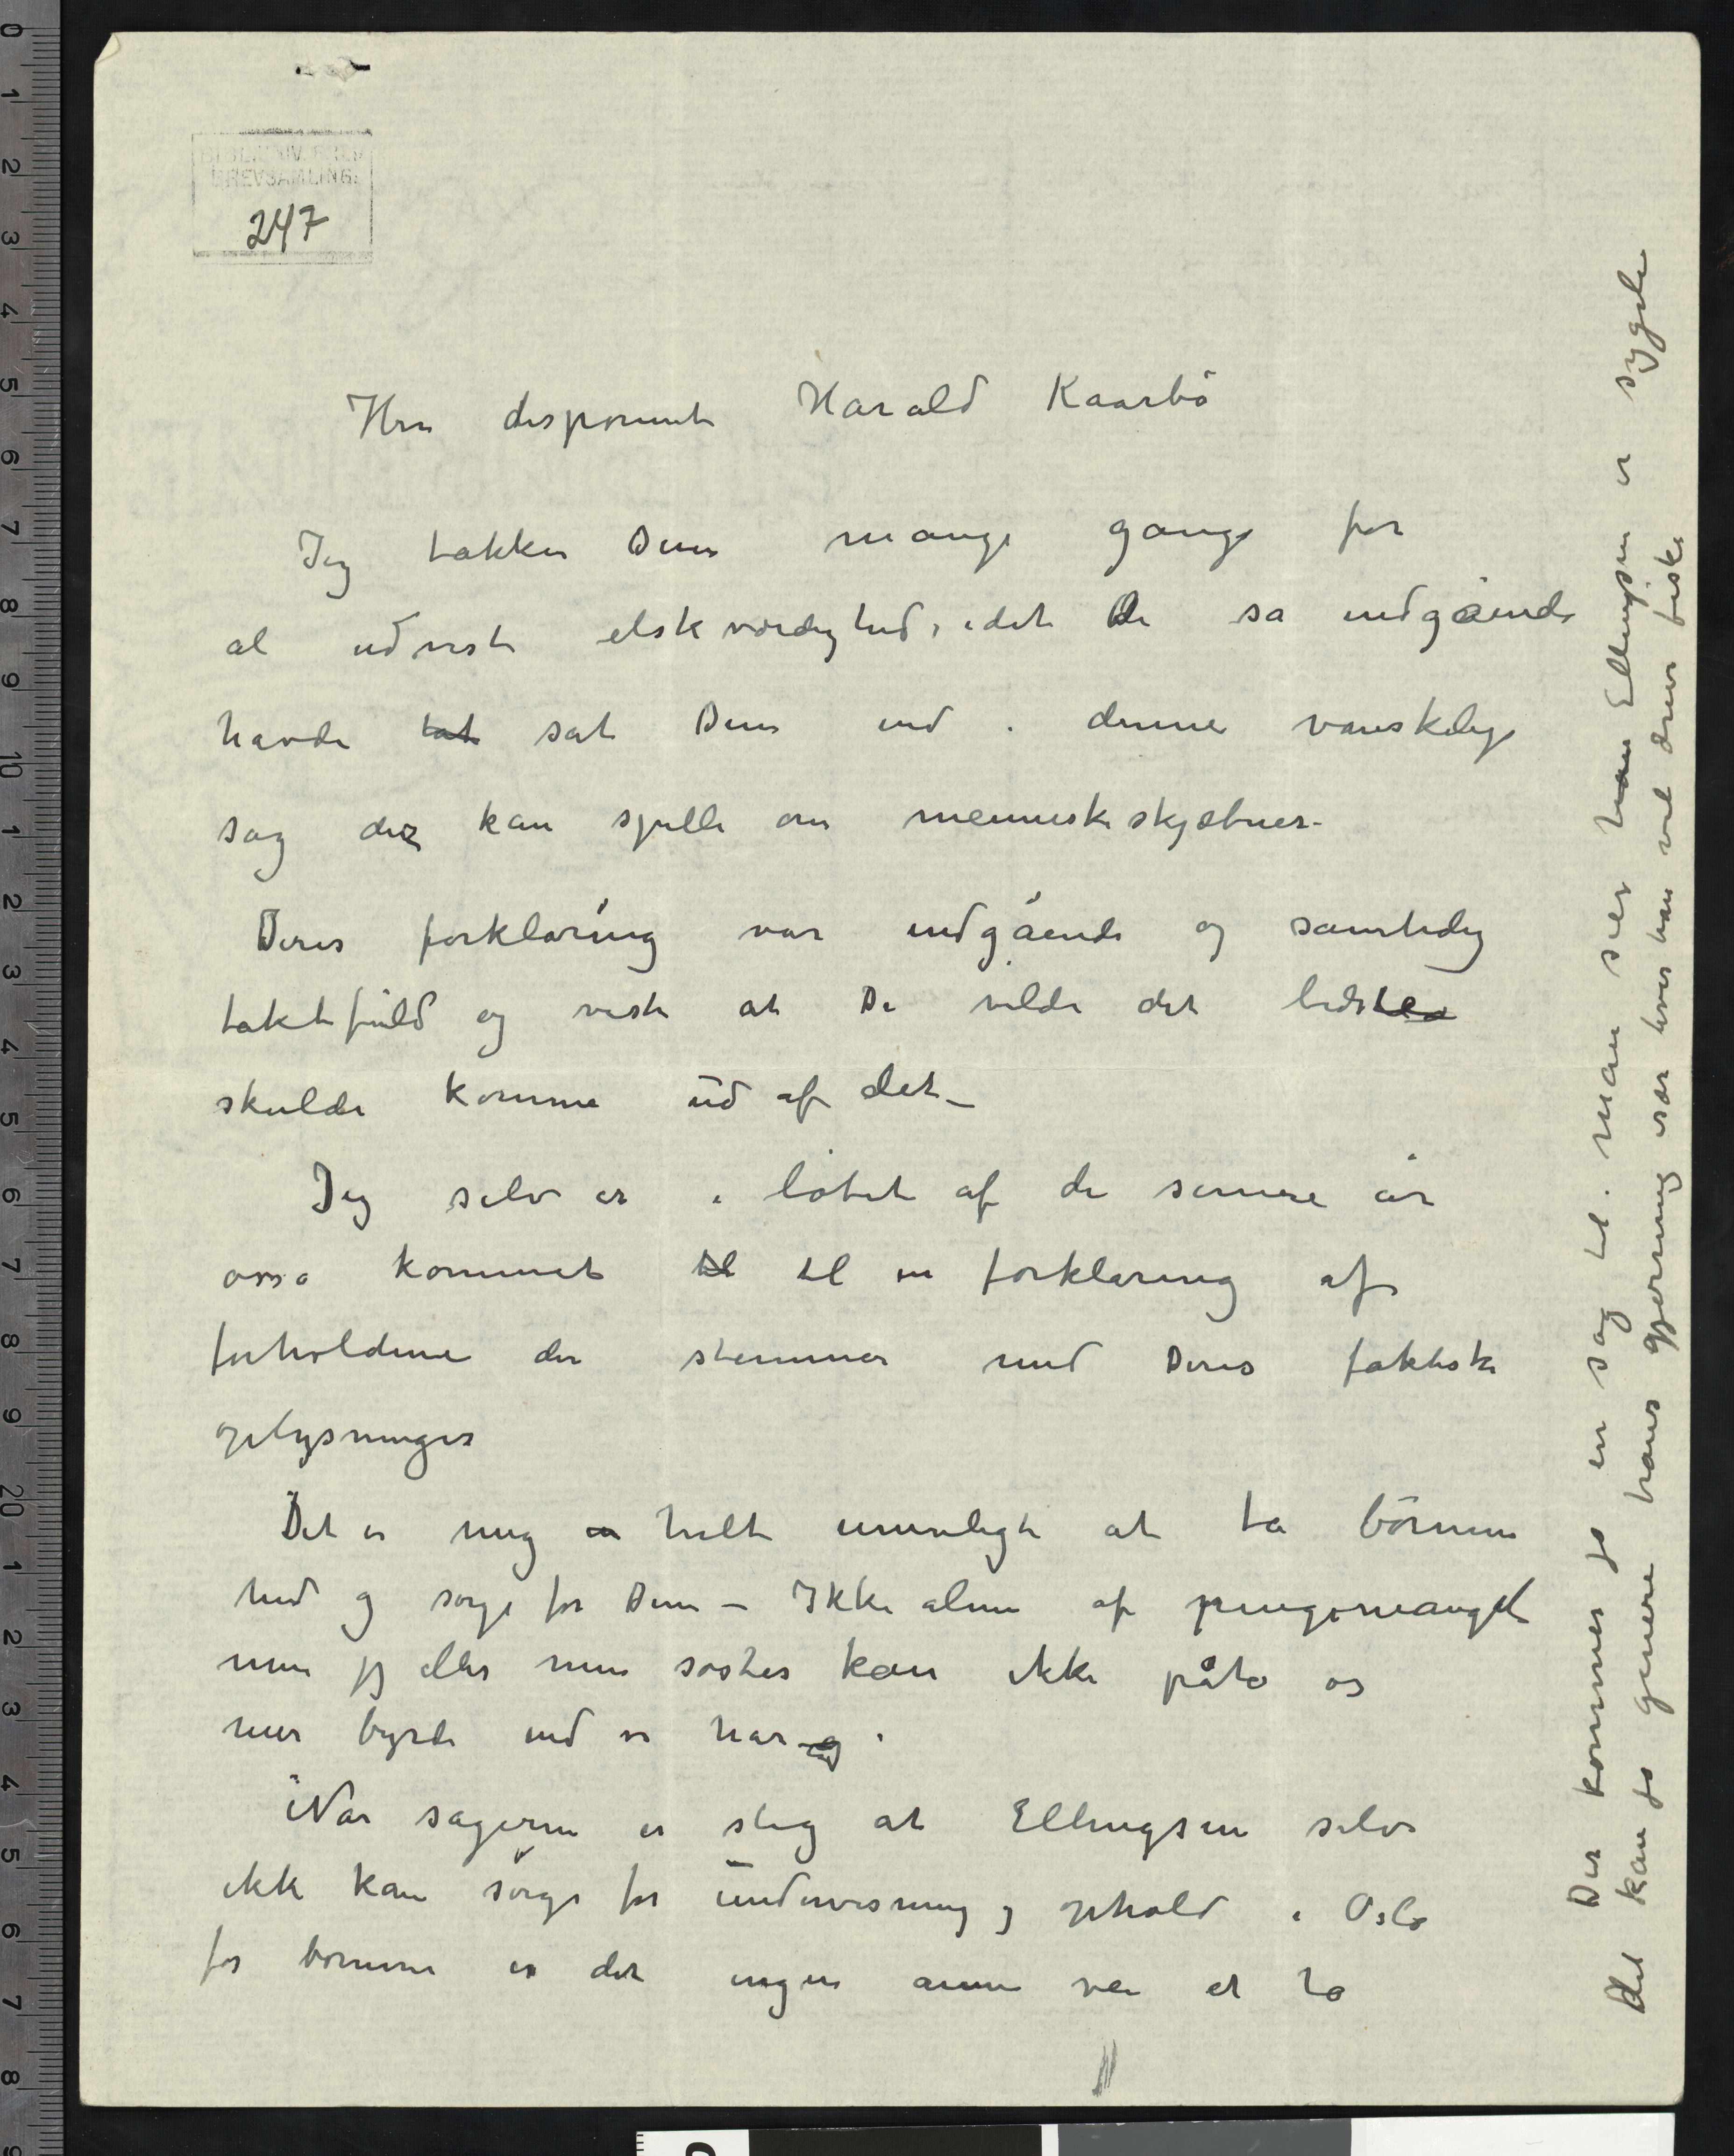 BREVSAMLING
247
Herr disponent Harald Kaarbö
Jeg takker Dem mange gange for
al udvist elskværdighed, idet De sa indgående
havde tat sat Dem ind i denne vanskelige
sag der kan spille om menneskeskjæbner.
Deres forklaring var indgående og samtidig
taktfuld og viste at De vilde det bedste
skulde komme ud af det –
Jeg selv er i løbet af de senere år
ossa kommet til til en forklaring af
forholdene der stemmer med Deres faktiske
oplysninger
Det er mig en helt umuligt at ta börnene
hid og sørge for Dem – Ikke alene af pengemangel
men jeg eller min søster kan ikke påta os
mer byrde end vi har og.
Når sagerne er slig at Ellingsen selv
ikke kan sörge for undervisning og ophold i Oslo
for børnene er det ingen annen vei at ta
Der kommer jo en sag til. man sier han Ellingsen er sygelig
det kan jo genere hans gjerning især hvis han vil drive fiske